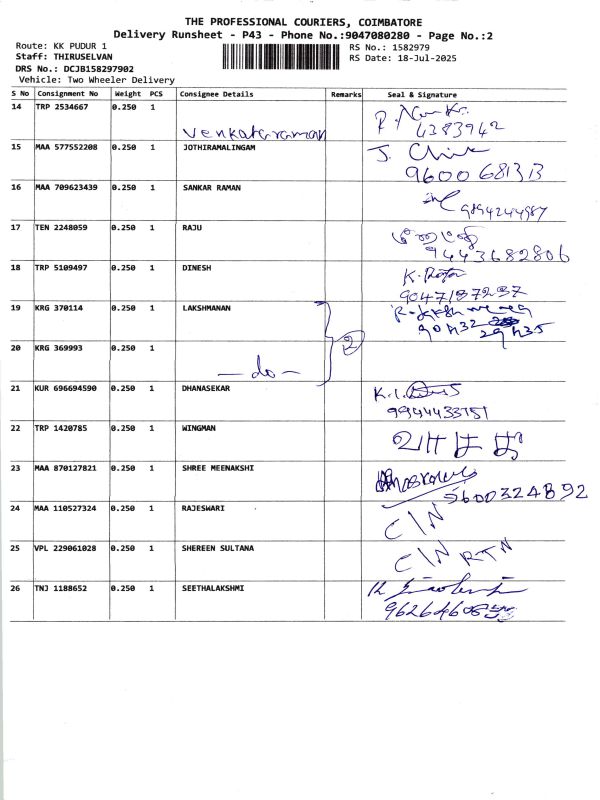 THE PROFESSIONAL COURIERS, COIMBATORE
Delivery Runsheet - P43 - Phone No.:9047080280 - Page No.:2
Route: KK PUDUR 1
RS No.: 1582979
Staff: THIRUSELVAN
RS Date: 18-Jul-2025
DRS No.: DCJB158297902
Vehicle: Two Wheeler Delivery
S No Consignment No Weight PCS Consignee Details Remarks Seal & Signature
14 TRP 2534667 0.250 1
Venkataraman 4383942
15 MAA 577552208 0.250 1 JOTHIRAMALINGAM J.
9600 681313
16 MAA 709623439 0.250 1 SANKAR RAMAN
9894244987
17 TEN 2248059 0.250 1 RAJU
9443682806
18 TRP 5109497 0.250 1 DINESH K.
9047137237
19 KRG 370114 0.250 1 LAKSHMANAN
20 KRG 369993 0.250 1 2
- do -
21 KUR 696694590 0.250 1 DHANASEKAR
9944433751
22 TRP 1420785 0.250 1 WINGMAN
23 MAA 870127821 0.250 1 SHREE MEENAKSHI
5600324892
24 MAA 110527324 0.250 1 RAJESWARI C/N
25 VPL 229061028 0.250 1 SHEREEN SULTANA C/N RTN
26 TNJ 1188652 0.250 1 SEETHALAKSHMI